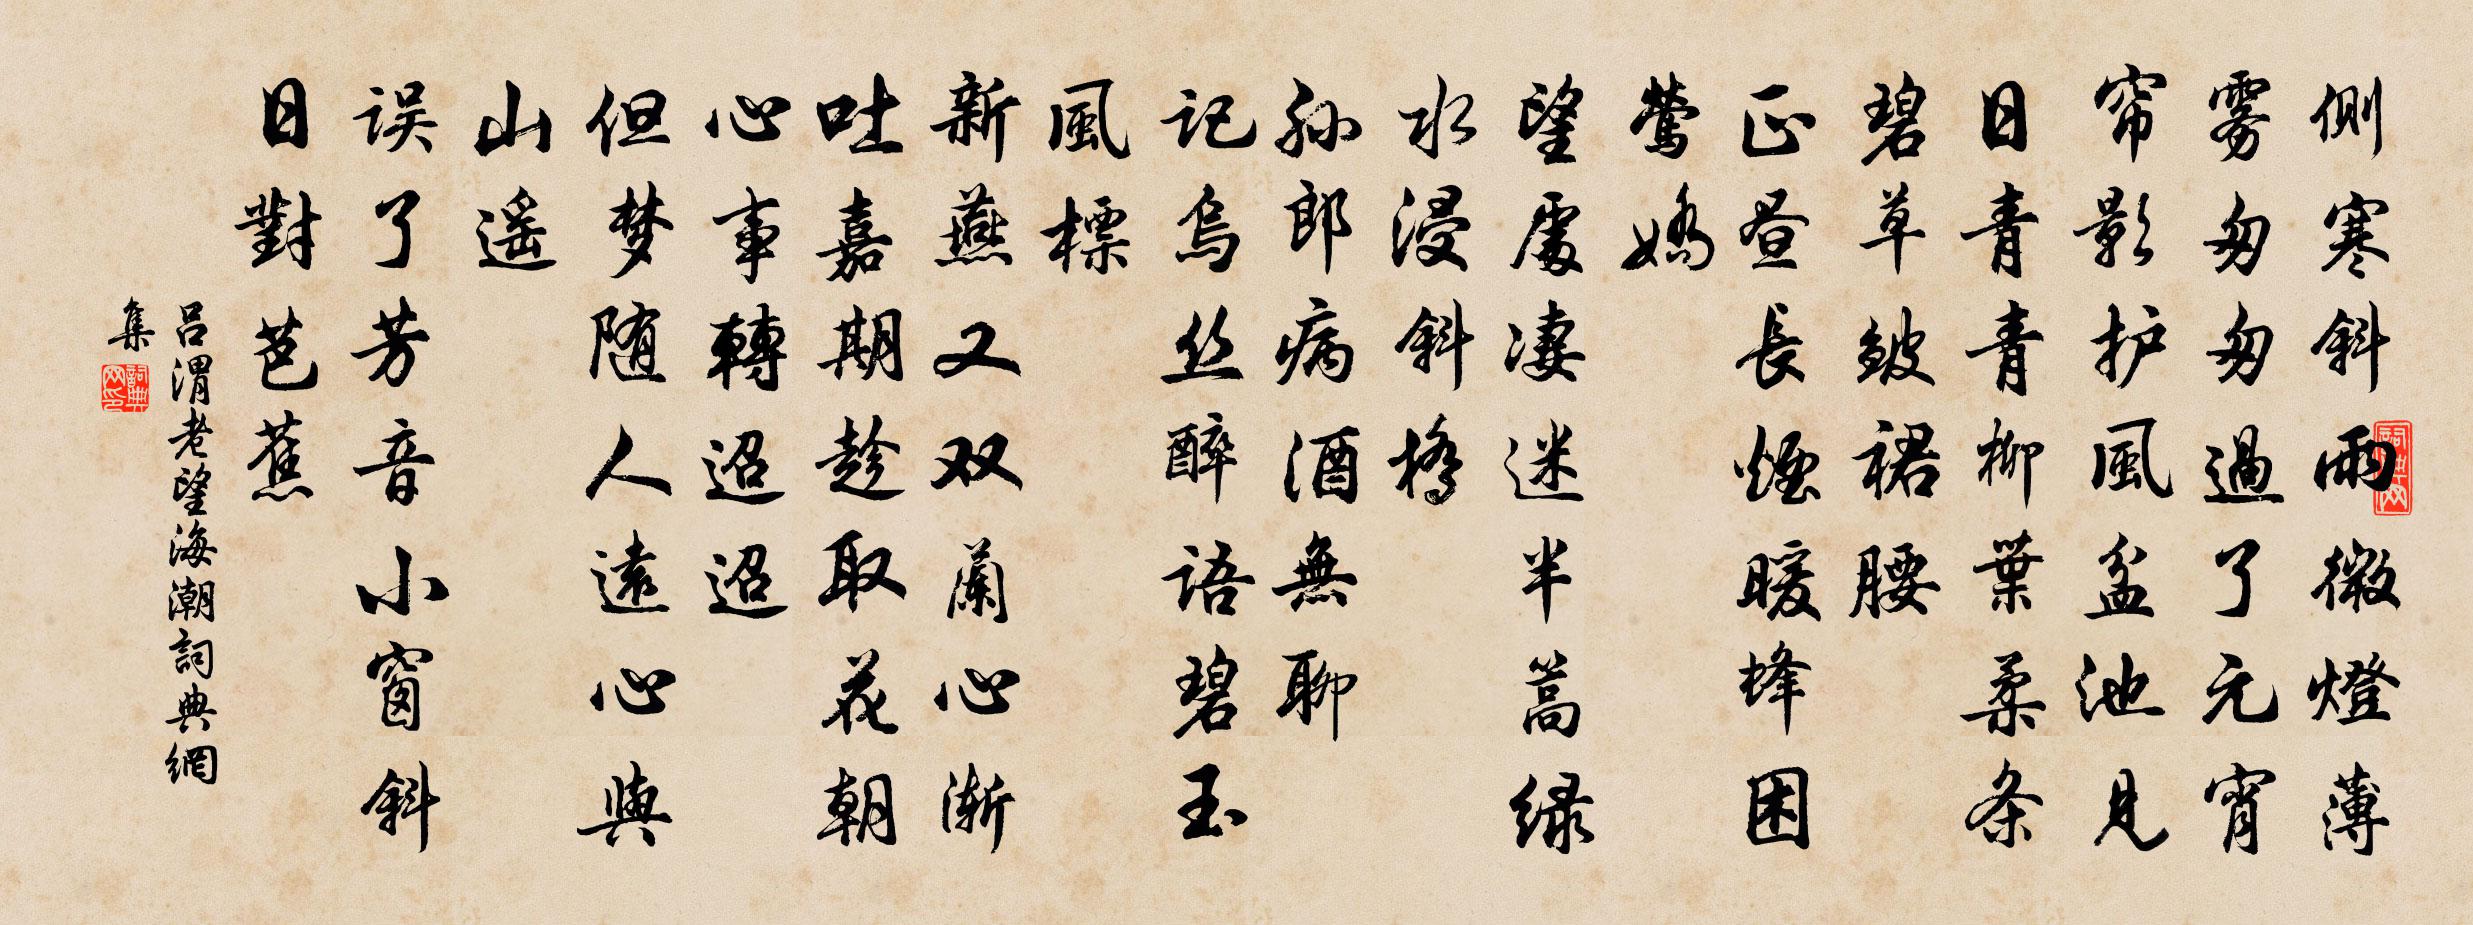 側寒斜雨微燈薄
雾匆匆過了元宵
帘影护風盆池見
日青青柳葉柔条
碧草皱裙腰
正昼長煙暖蜂困
莺嬌
望處凄迷半篙緑
水浸斜橋
孙郎病酒無聊
记烏丝醉语碧玉
風標
新燕又双蘭心漸
吐嘉期趁取花朝
心事轉迢迢
但梦随人遠心與
山遥
误了芳音小窗斜
日對芭蕉
吕渭老望海潮詞典網
集
詞典网
詞典网印